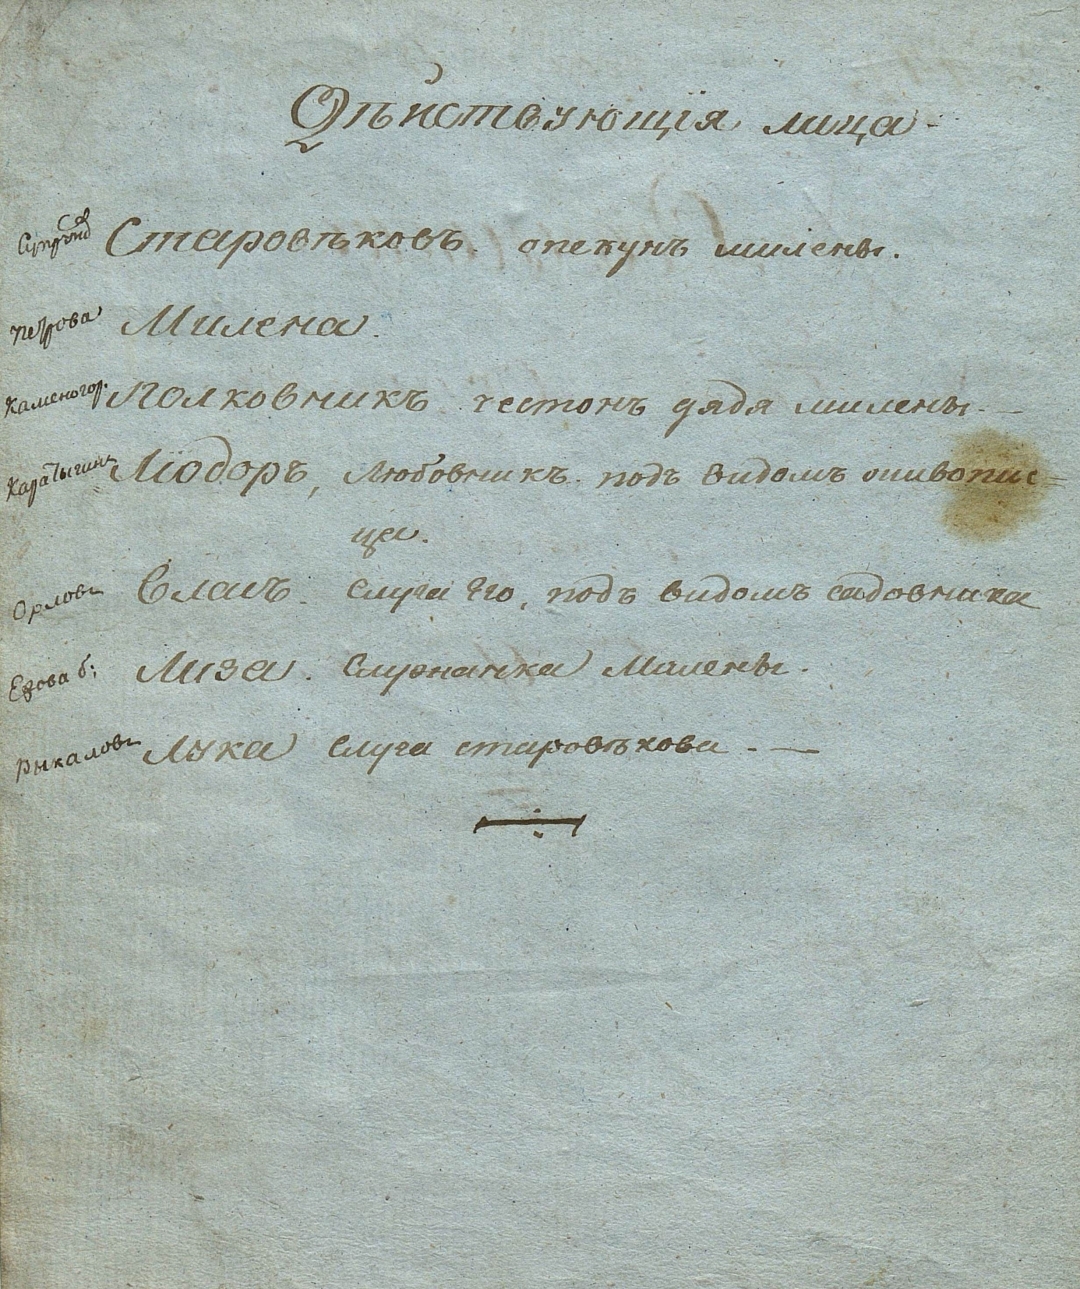 Дѣйствующія лица.
Старовѣковъ. опекунъ милены.
Петрова Милена.
Каменогор. Полковникъ честонъ дядя милены. —
Каратыгинъ Людоръ, Любовникъ. подъ видомъ живопис=
ца.
Орловъ Власъ. слуга Его, подъ видомъ садовника
Ежова б: Лиза. Служанка Милены.
Рыкаловъ Лука Слуга старовѣкова. —